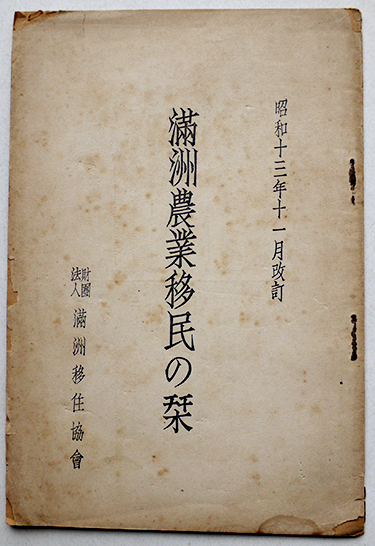 昭和十三年十一月改訂
満洲農業移民の栞
財團法人 満洲移住協會